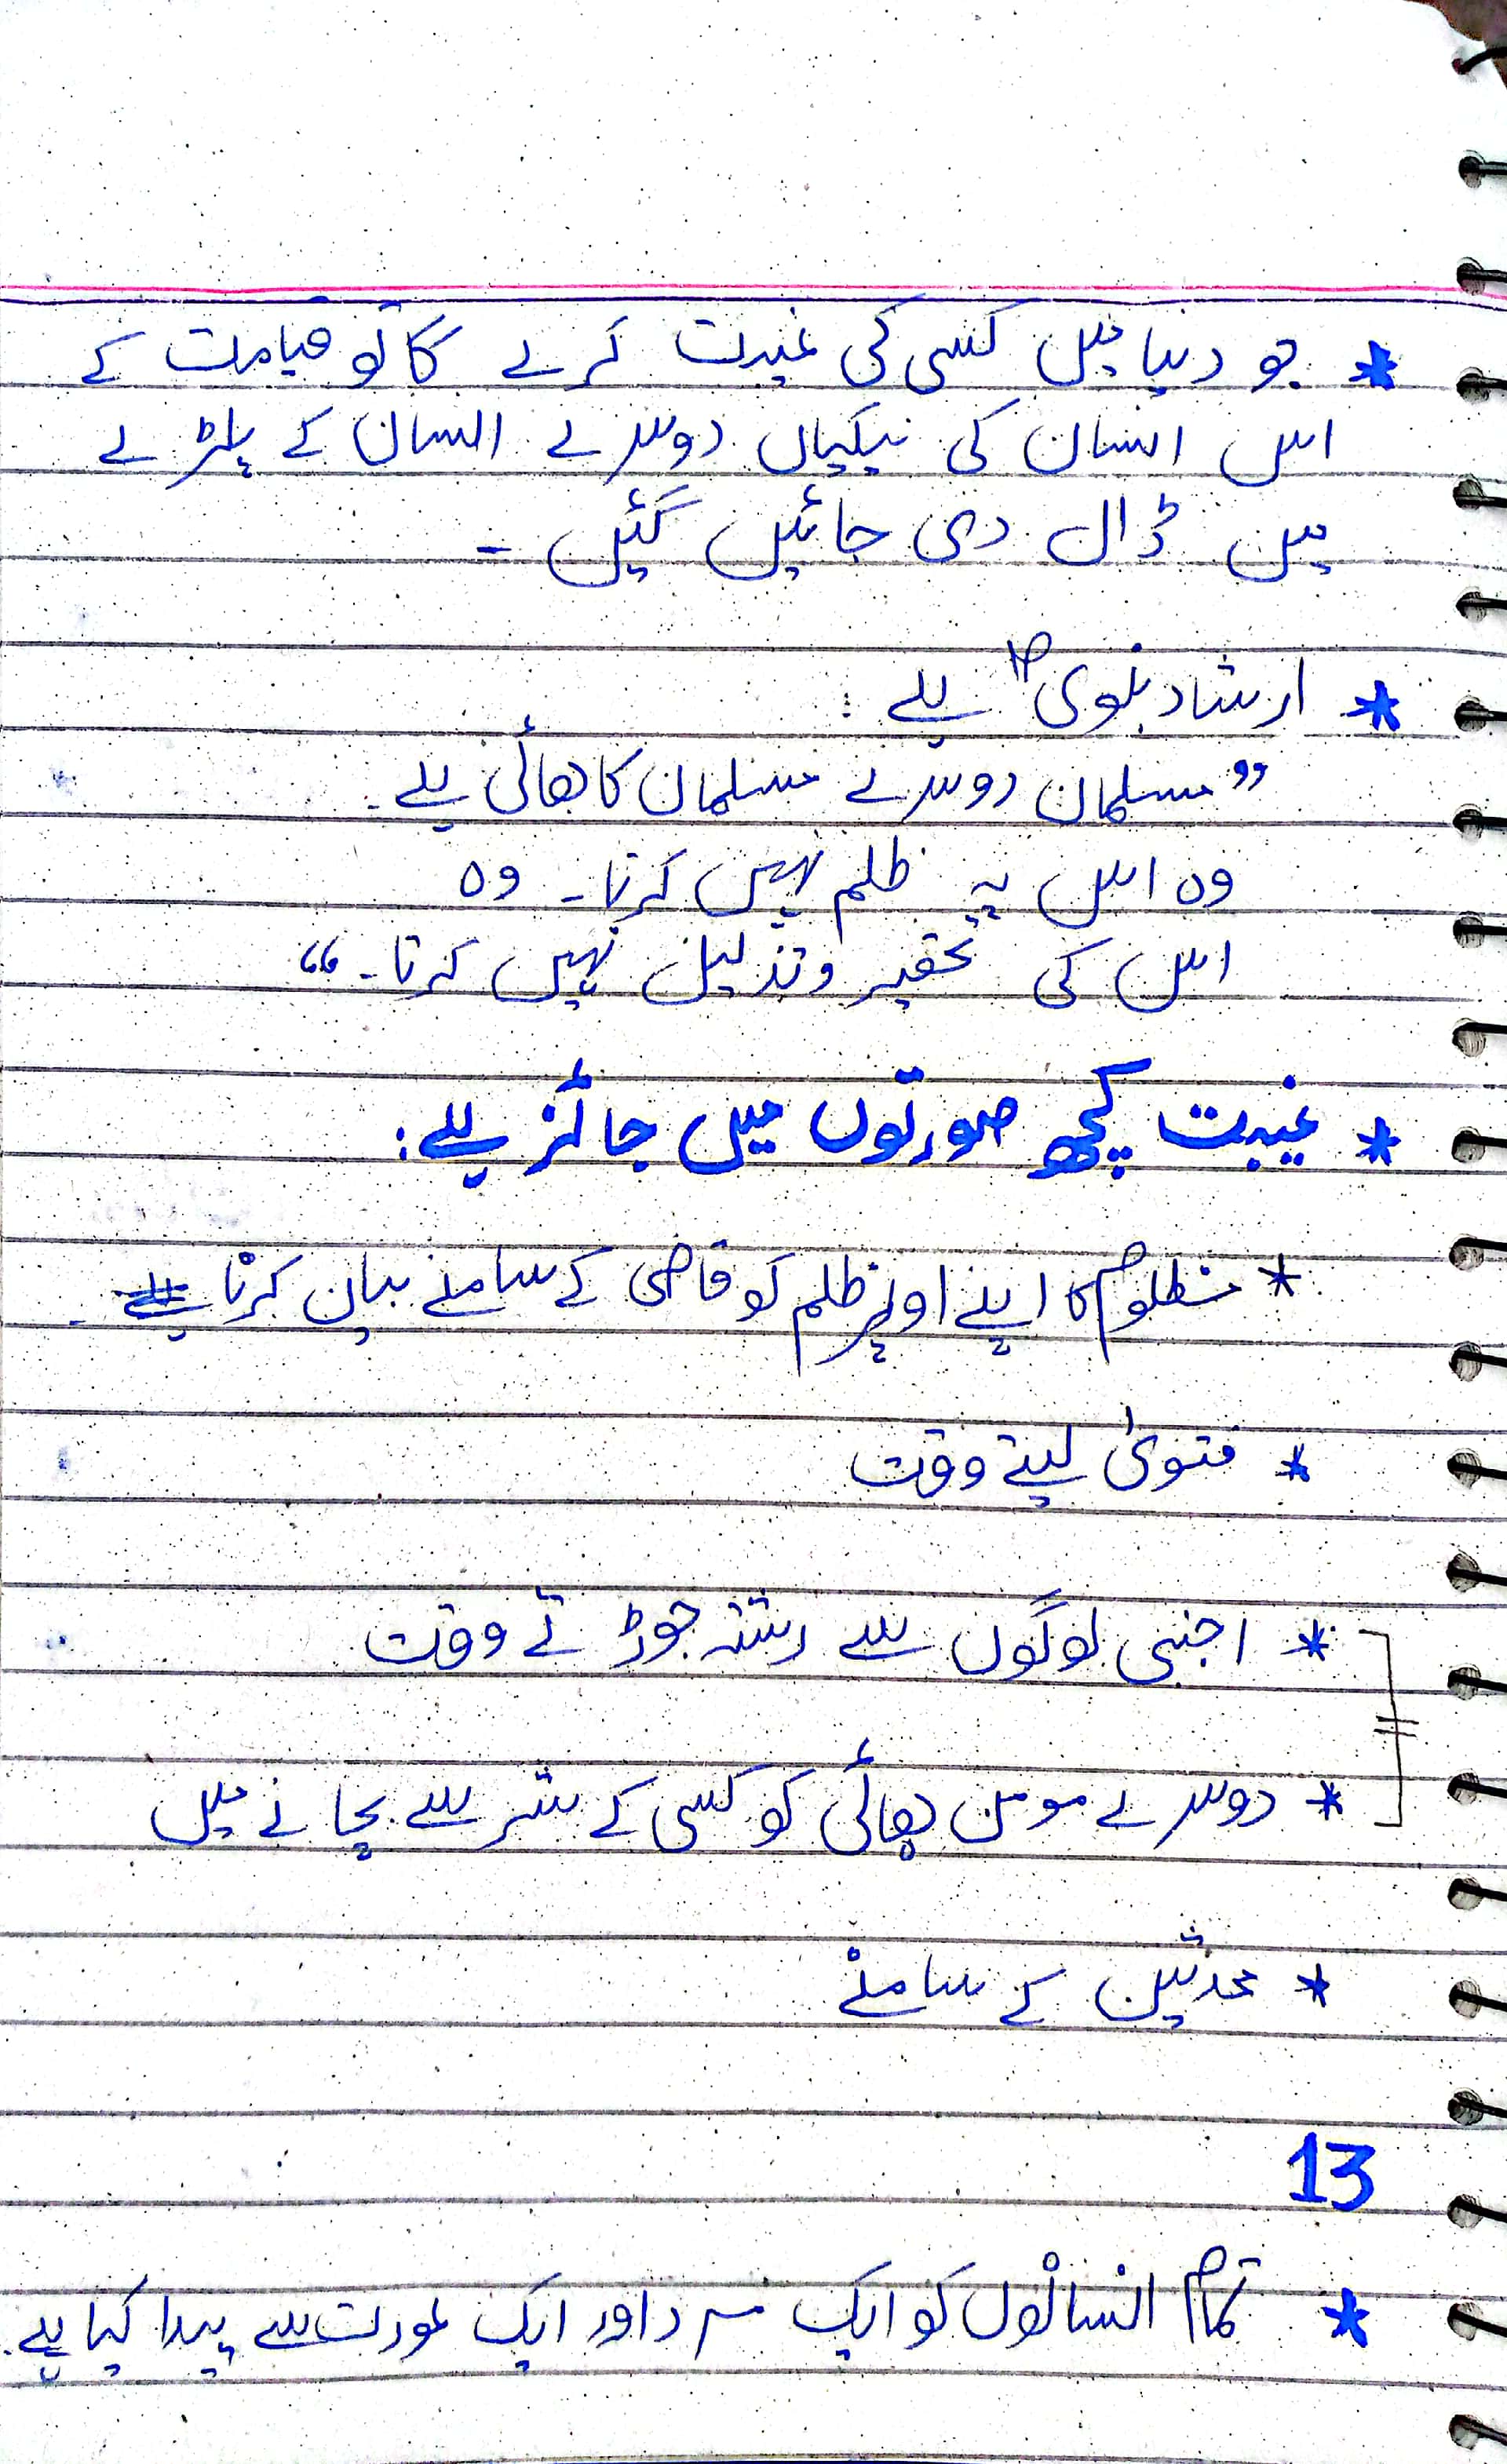 * جو دنیا میں کسی کی غیبت کرے گا تو قیامت کے
اس انسان کی نیکیاں دوسرے انسان کے پلڑے
میں ڈال دی جائیں گئیں -
* ارشاد نبوی ؐ ہے :
”مسلمان دوسرے مسلمان کا بھائی ہے۔
وہ اس پہ ظلم نہیں کرتا۔ وہ
اس کی تحقیر و تذلیل نہیں کرتا۔“
* غیبت کچھ صورتوں میں جائز ہے:
* مظلوم کا اپنے اوپر ظلم کو قاضی کے سامنے بیان کرنا ہے۔
* فتویٰ لیتے وقت
* اجنبی لوگوں سے رشتہ جوڑتے وقت
* دوسرے مومن بھائی کو کسی کے شر سے بچانے میں
* محدثین کے سامنے
13
* تمام انسانوں کو ایک مرد اور ایک عورت سے پیدا کیا ہے۔